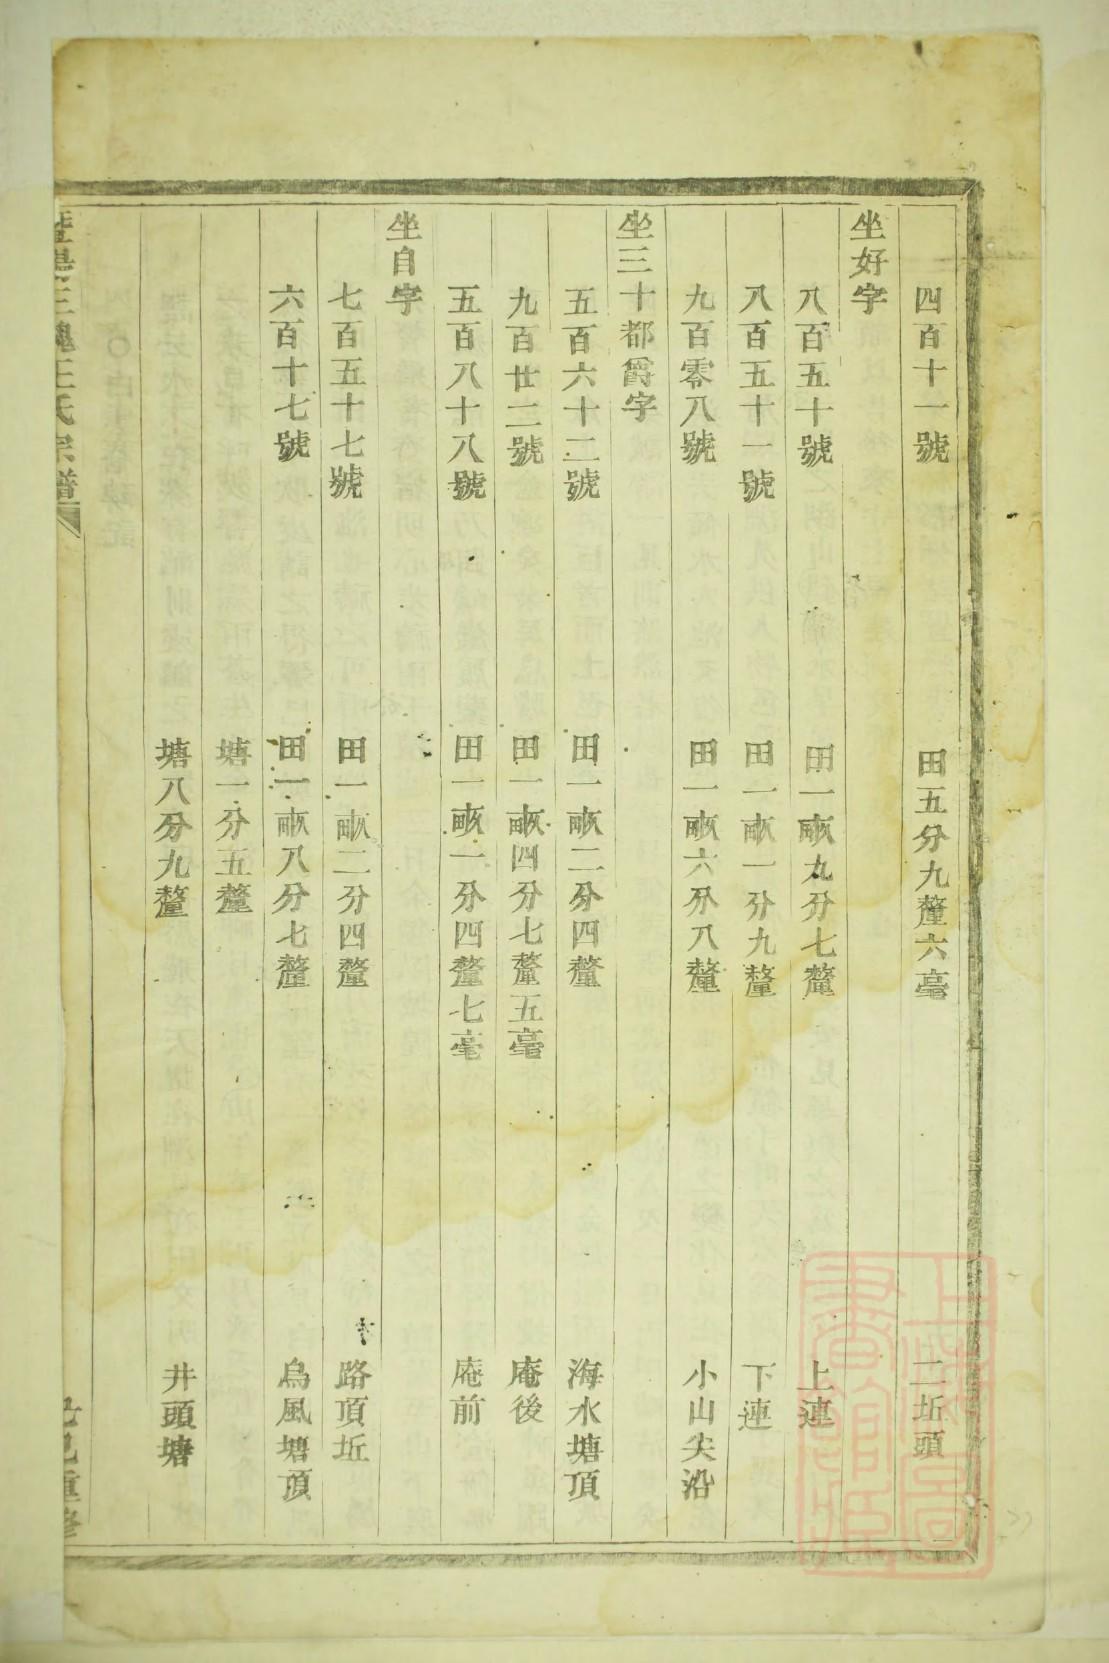 四百十一號 田五分九釐六毫 二坵頭
坐好字
八百五十號 田一畝九分七釐 上連
八百五十一號 田一畝一分九釐 下連
九百零八號 田一畝六分八釐 小山尖沿
坐三十都爵字
五百六十二號 田一畝二分四釐 海水塘頂
九百廿二號 田一畝四分七釐五毫 庵後
五百八十八號 田一畝一分四釐七毫 庵前
坐自字
七百五十七號 田一畝二分四釐 路頂坵
六百十七號 田一畝八分七釐 烏風塘頂
塘一分五釐
塘八分九釐 井頭塘
王氏宗譜 重修
上海圖書館藏